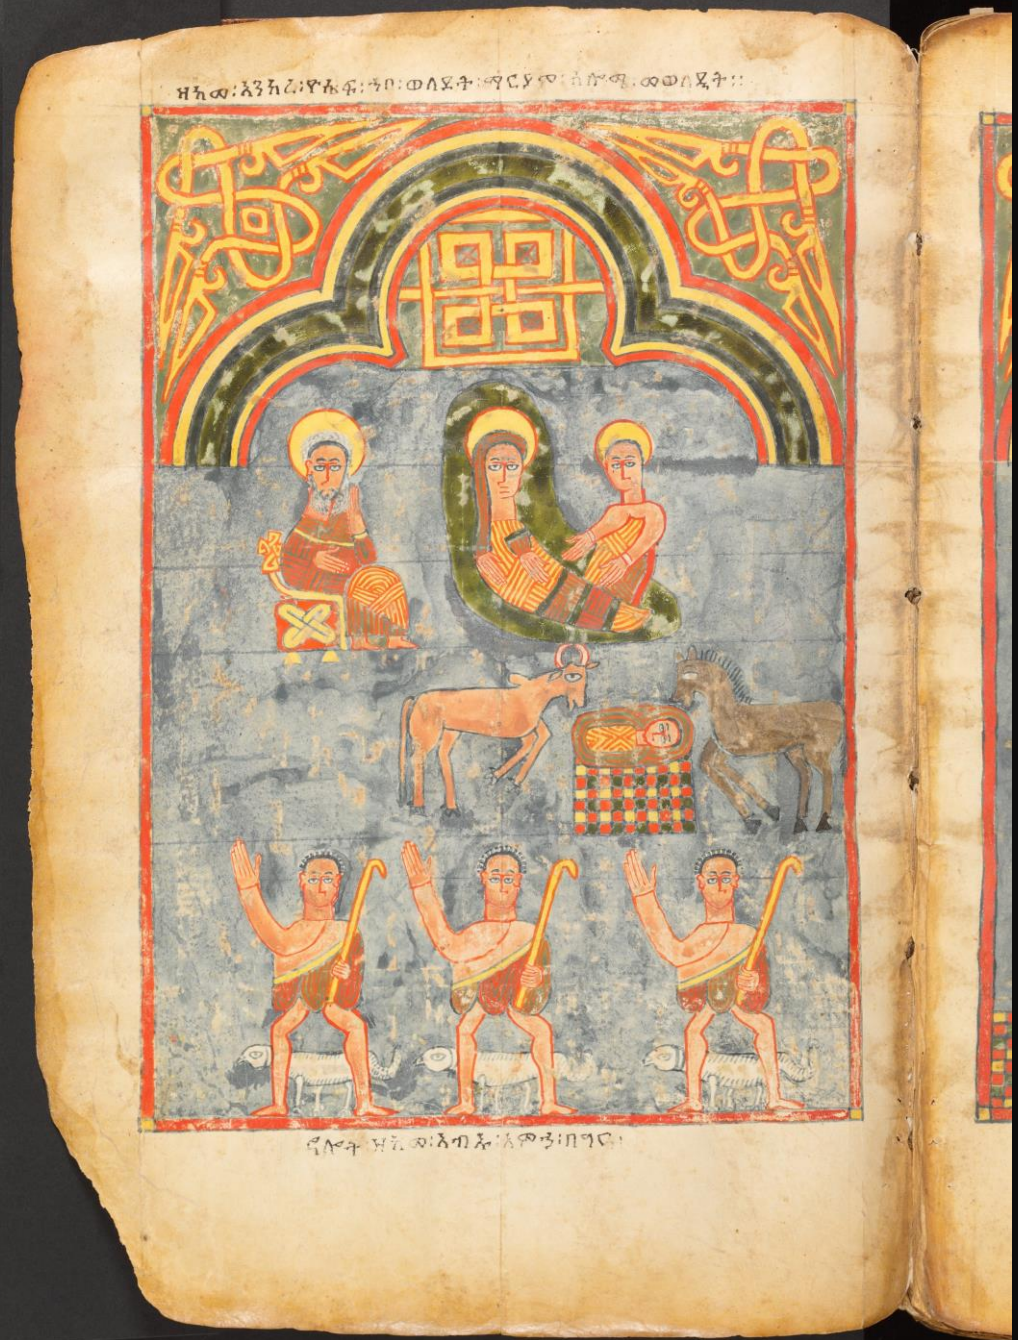 ዘከመ፡አንከረ፡ዮሴፍ፡ኀበ፡ወለደት፡ማርያም፡ሰሎሜ፡መወለዲት፡፡
ኖሎት፡ዘከመ፡አብኡ፡አምኃ፡